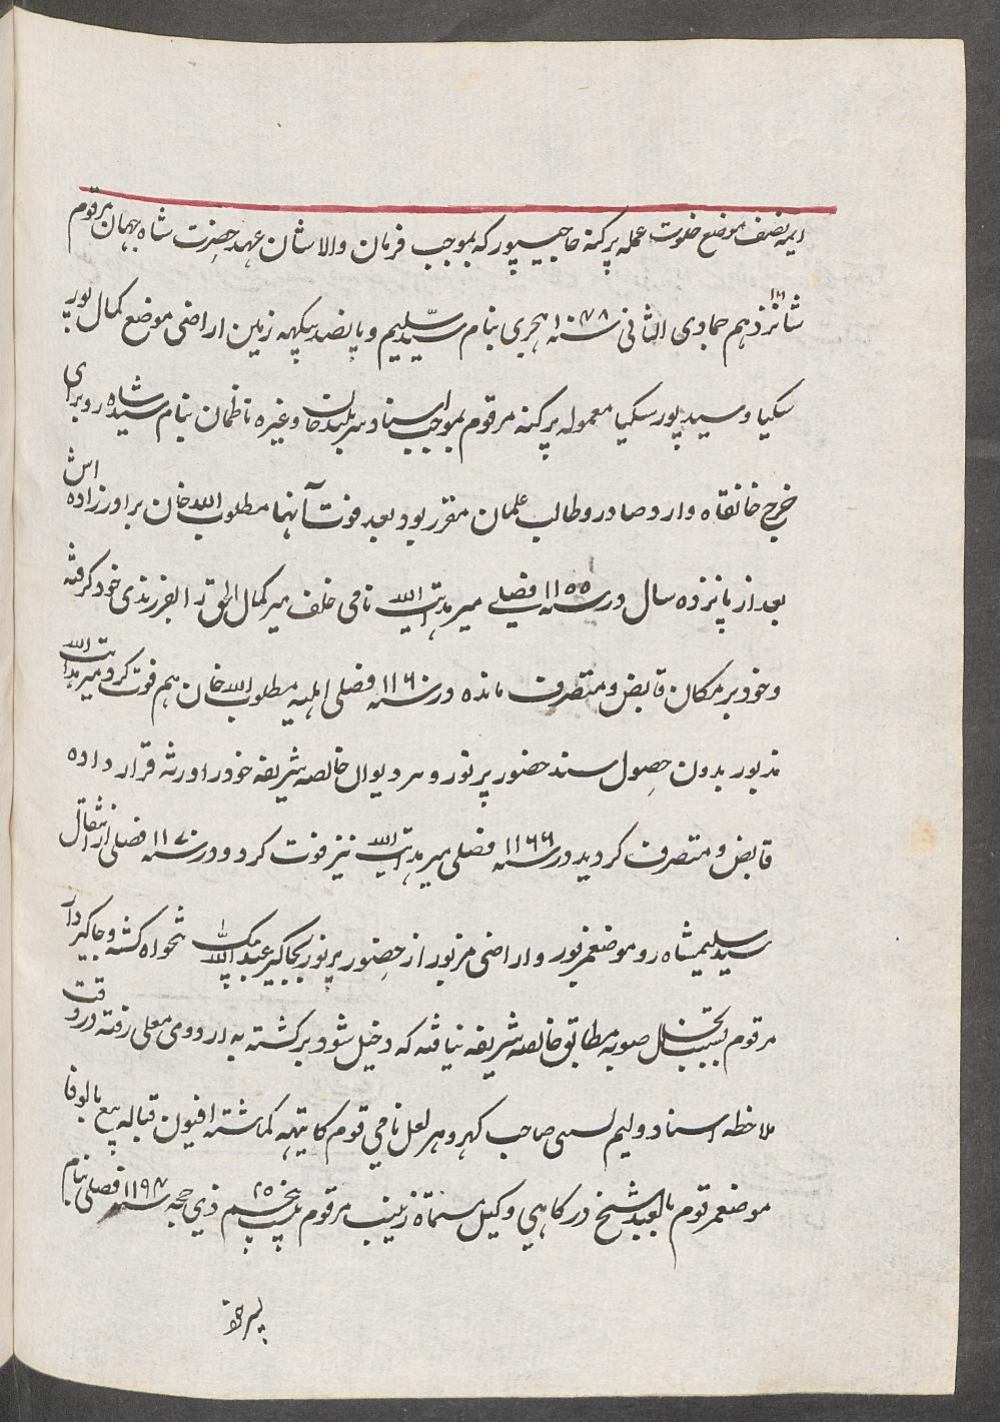 ایمه نصف موضع خلوت عمله پرکنه حاجیپور که بموجب فرمان والاشان عهد حضرت شاه جهان مرقوم
شانزدهم ۱۶ جمادی الثانی سنه ۱۰۷۸ هجری بنام سید سلیم و پانصد بیکهه زمین اراضی موضع کمال پور
سکیا و سید پور سکیا معموله پرکنه مرقوم بموجب اسناد سربلند خان وغیره ناظمان بنام سید شاه رو برای
خرج خانقاه وارد صادر و طالب علمان مقرر بود بعد فوت آنها مطلوب الله خان برادرزاده اش
بعد از پانزده سال در سنه ۱۱۵۵ فصلی میر هدایت الله نامی خلف میر کمال الحق را بفرزندی خود کرفته
و خود بر مکان قابض و متصرف مانده در سنه ۱۱۶۰ فصلی اهلیه مطلوب الله خان هم فوت کرد و میر هدایت الله
مذبور بدون حصول سند حضور پرنور و مهر دیوان خالصه شریفه خود را ورثه قرار داده
قابض و متصرف کردید در سنه ۱۱۶۶ فصلی میر هدایت الله نیز فوت کرد و در سنه ۱۱۷۰ فصلی از انتقال
سید سلیم شاه رو موضع مزبور و اراضی مزبور از حضور پرنور بجاکیر عبد الله بیک تنخواه کشته و جاکیردار
مرقوم بسبب تخلل صوبه مطابق خالصه شریفه نیافته که دخیل شود برکشته به اردوی معلی رفته در وقت
ملاحظه اسناد ولیم صاحب کهر و هر لعل نامی قوم کایتهه کماشته افیون قباله بیع بالوفا
موضع مرقوم بالعبد شیخ درکاهی وکیل مسماة زینب مرقوم بست پنجم ۲۵ ذی حجه سنه ۱۱۹۷ فصلی بنام
پسر خود